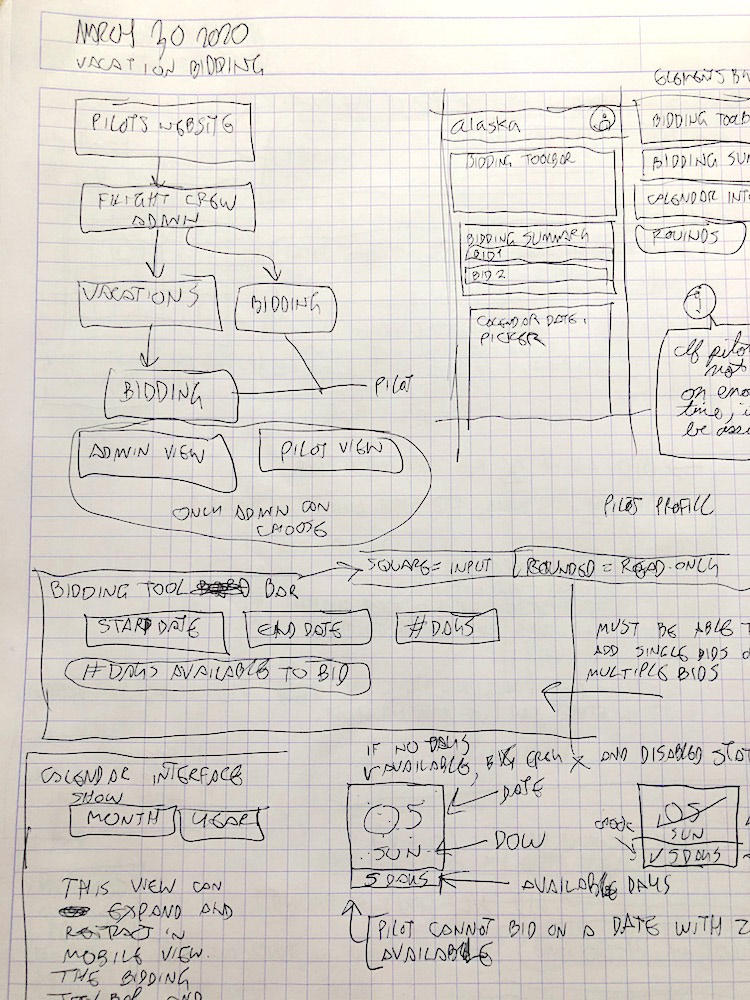 MARCH 30 2020
VACATION BIDDING
PILOTS WEBSITE
FLIGHT CREW
ADMIN
VACATIONS
BIDDING
BIDDING
PILOT
ADMIN VIEW
PILOT VIEW
ONLY ADMIN CAN
CHOOSE
alaska
BIDDING TOOLBAR
BIDDING SUMMARY
BID 1
BID 2
CALENDAR DATE
PICKER
ELEMENTS
BIDDING
BIDDING
CALENDAR
ROUNDS
If
not
on
be
PILOT PROFILE
BIDDING TOOL BAR
SQUARE = INPUT
ROUNDED = READ-ONLY
START DATE
END DATE
# DAYS
# DAYS AVAILABLE TO BID
MUST BE ABLE
ADD SINGLE BIDS
MULTIPLE BIDS
CALENDAR INTERFACE
SHOW
MONTH
YEAR
THIS VIEW CAN
EXPAND AND
RETRACT IN
MOBILE VIEW.
THE BIDDING
TOOLBAR AND
IF NO DAYS
AVAILABLE, X AND DISABLED
05
SUN
5 DAYS
DATE
DOW
AVAILABLE DAYS
05
SUN
✓ 5 DAYS
PILOT CANNOT BID ON A DATE WITH
AVAILABLE